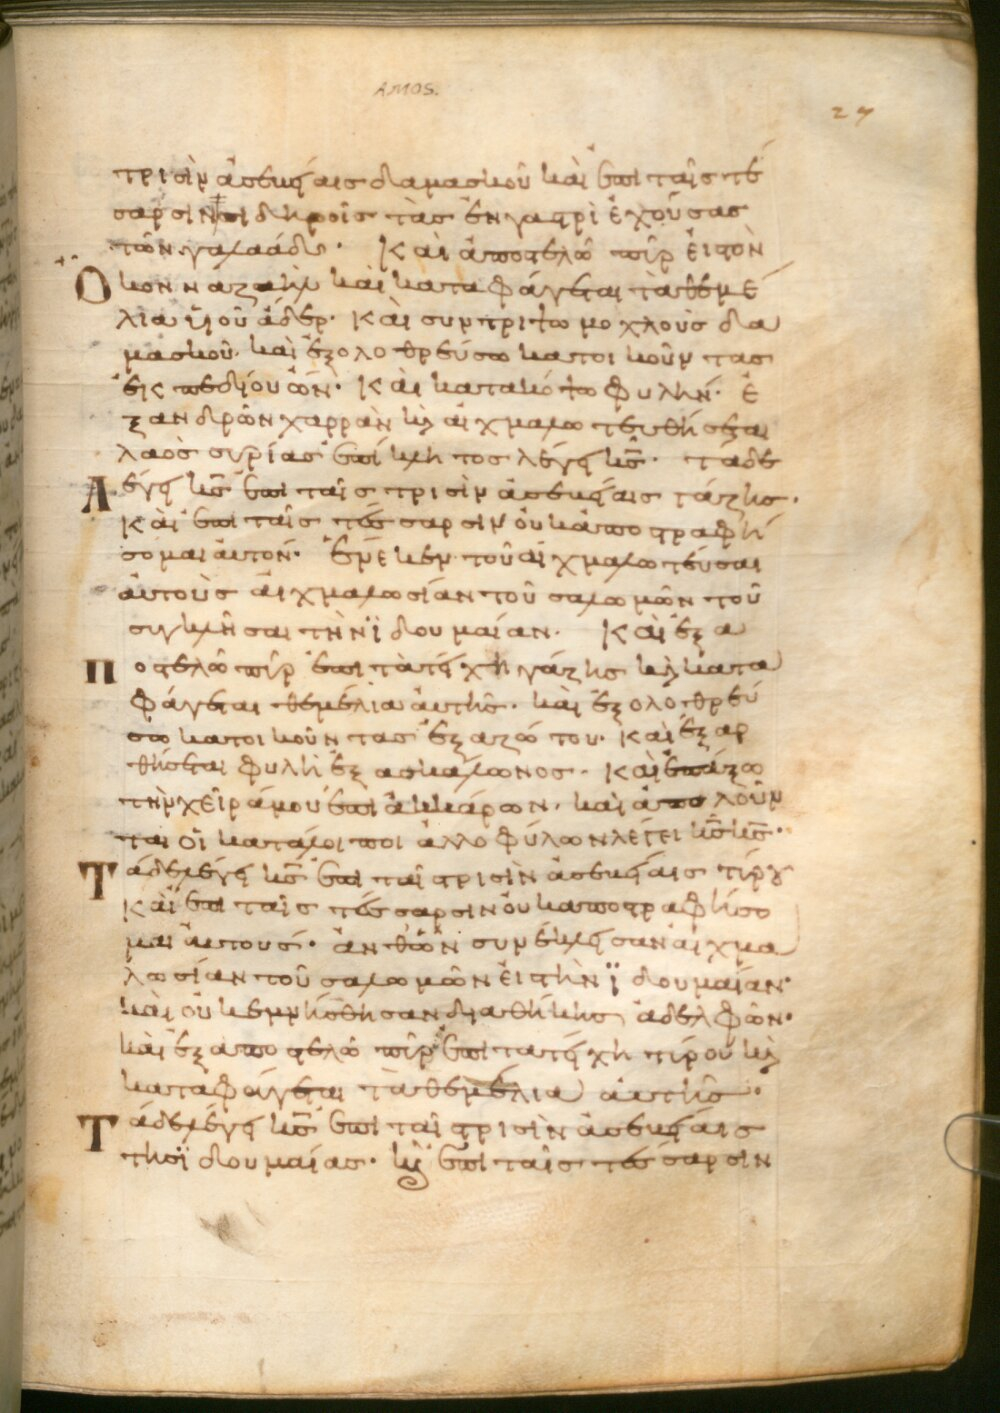 AMOS.
27
τρισὶν ἀσεβείαις δαμασκοῦ καὶ ἐπὶ ταῖς τέσ
σαρσιν σιδηροῖς τὰς ἐν γαστρὶ ἐχούσας
τῶν γαλαάδ· Καὶ ἀποστελῶ πῦρ εἰς τὸν
Οἶκον ναζαὴλ καὶ καταφάγεται τὰ θεμέ
λια υἱοῦ ἄδερ· Καὶ συντρίψω μοχλοὺς δα
μασκοῦ· καὶ ἐξολοθρεύσω κατοικοῦντας
ἐκ πεδίου ὦν· Καὶ κατακόψω φυλὴν· ἐ
ξ ανδρῶν χαρρὰν κὶ αἰχμαλωτευθήσεται
λαὸς συρίας ἐπίκλητος λέγει κς̅· τάδε
Λέγει κς̅ ἐπὶ ταῖς τρισὶν ἀσεβείαις γάζης·
Καὶ ἐπὶ ταῖς τέσσαρσιν οὐκ ἀποστραφή
σομαι αὐτόν· ἕνεκεν τοῦ αἰχμαλωτεῦσαι
αὐτοὺς αἰχμαλωσίαν τοῦ σαλωμῶν τοῦ
συγκλῆσαι τὴν ϊδουμαίαν· Καὶ ἐξα
Ποστελῶ πῦρ ἐπὶ τὰ τείχη γάζης κὶ κατα
φάγεται θεμέλια αὐτῆς· καὶ ἐξολοθρεύ
σω κατοικοῦντας ἐξ αζώτου· Καὶ ἐξαρ
θήσεται φυλὴ ἐξ ασκάλωνος· Καὶ ἐπάξω
τὴν χεῖρά μου ἐπὶ ἀκκάρων· καὶ ἀπολοῦν
ται οἱ κατάλοιποι ἀλλοφύλων λέγει κς̅ κς̅·
Τάδε λέγει κς̅ ἐπὶ ταῖ στρισὶν ἀσεβείαις τύρου
Καὶ ἐπὶ ταῖς τέσσαρσιν οὐκ ἀποστραφήσο
μαι αὐτούς· ἀνθ' ὧν συνέκλεισαν αἰχμα
λωσίαν τοῦ σαλωμῶν εἰς τὴν ϊδουμαίαν·
καὶ οὐκ ἐμνήσθησαν διαθήκης ἀδελφῶν·
καὶ ἐξαποστελῶ πῦρ ἐπὶ τὰ τείχη τύρου κὶ
καταφάγεται τὰ θεμέλια αὐτῆς·
Τάδε λέγει κς̅ ἐπὶ ταῖ στρισὶν ἀσεβείαις
τῆς ϊδουμαίας· κὶ ἐπὶ ταῖς τέσσαρσιν